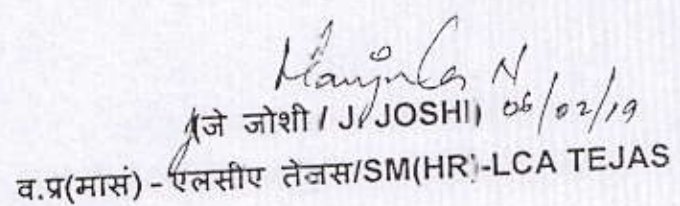 Manjula N
(जे जोशी / J JOSHI) 06/02/19
व.प्र(मासं) - एलसीए तेजस/SM(HR)-LCA TEJAS